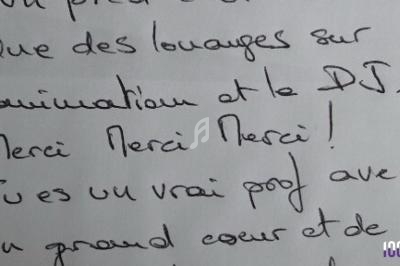 Que des louanges sur
animation et le DJ.
Merci Merci Merci!
Tu es un vrai prof ave
un grand coeur et de
100